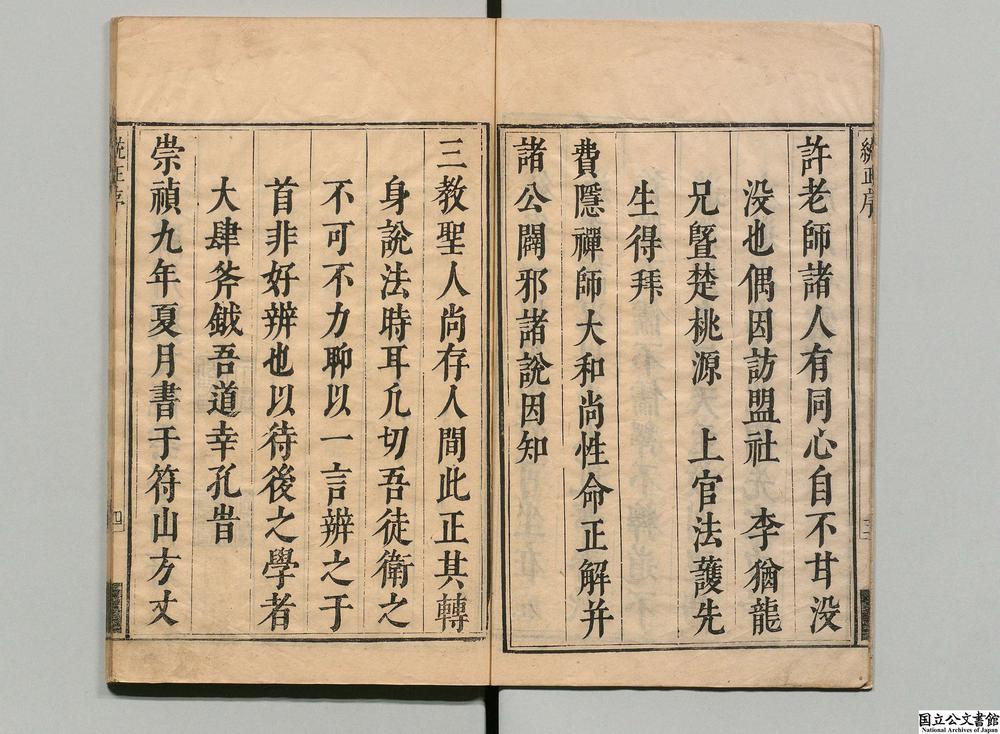 統正序
三
許老師諸人有同心自不甘没
没也偶因訪盟社　李猶龍
兄暨楚桃源　上官法護先
生得拜
費隱禪師大和尚性命正解并
諸公闢邪諸說因知
三教聖人尚存人間此正其轉
身說法時耳凢切吾徒衛之
不可不力聊以一言辨之于
首非好辨也以待後之學者
大肆斧鉞吾道幸孔旹
崇禎九年夏月書于符山方丈
統正序
四
国立公文書館
National Archives of Japan